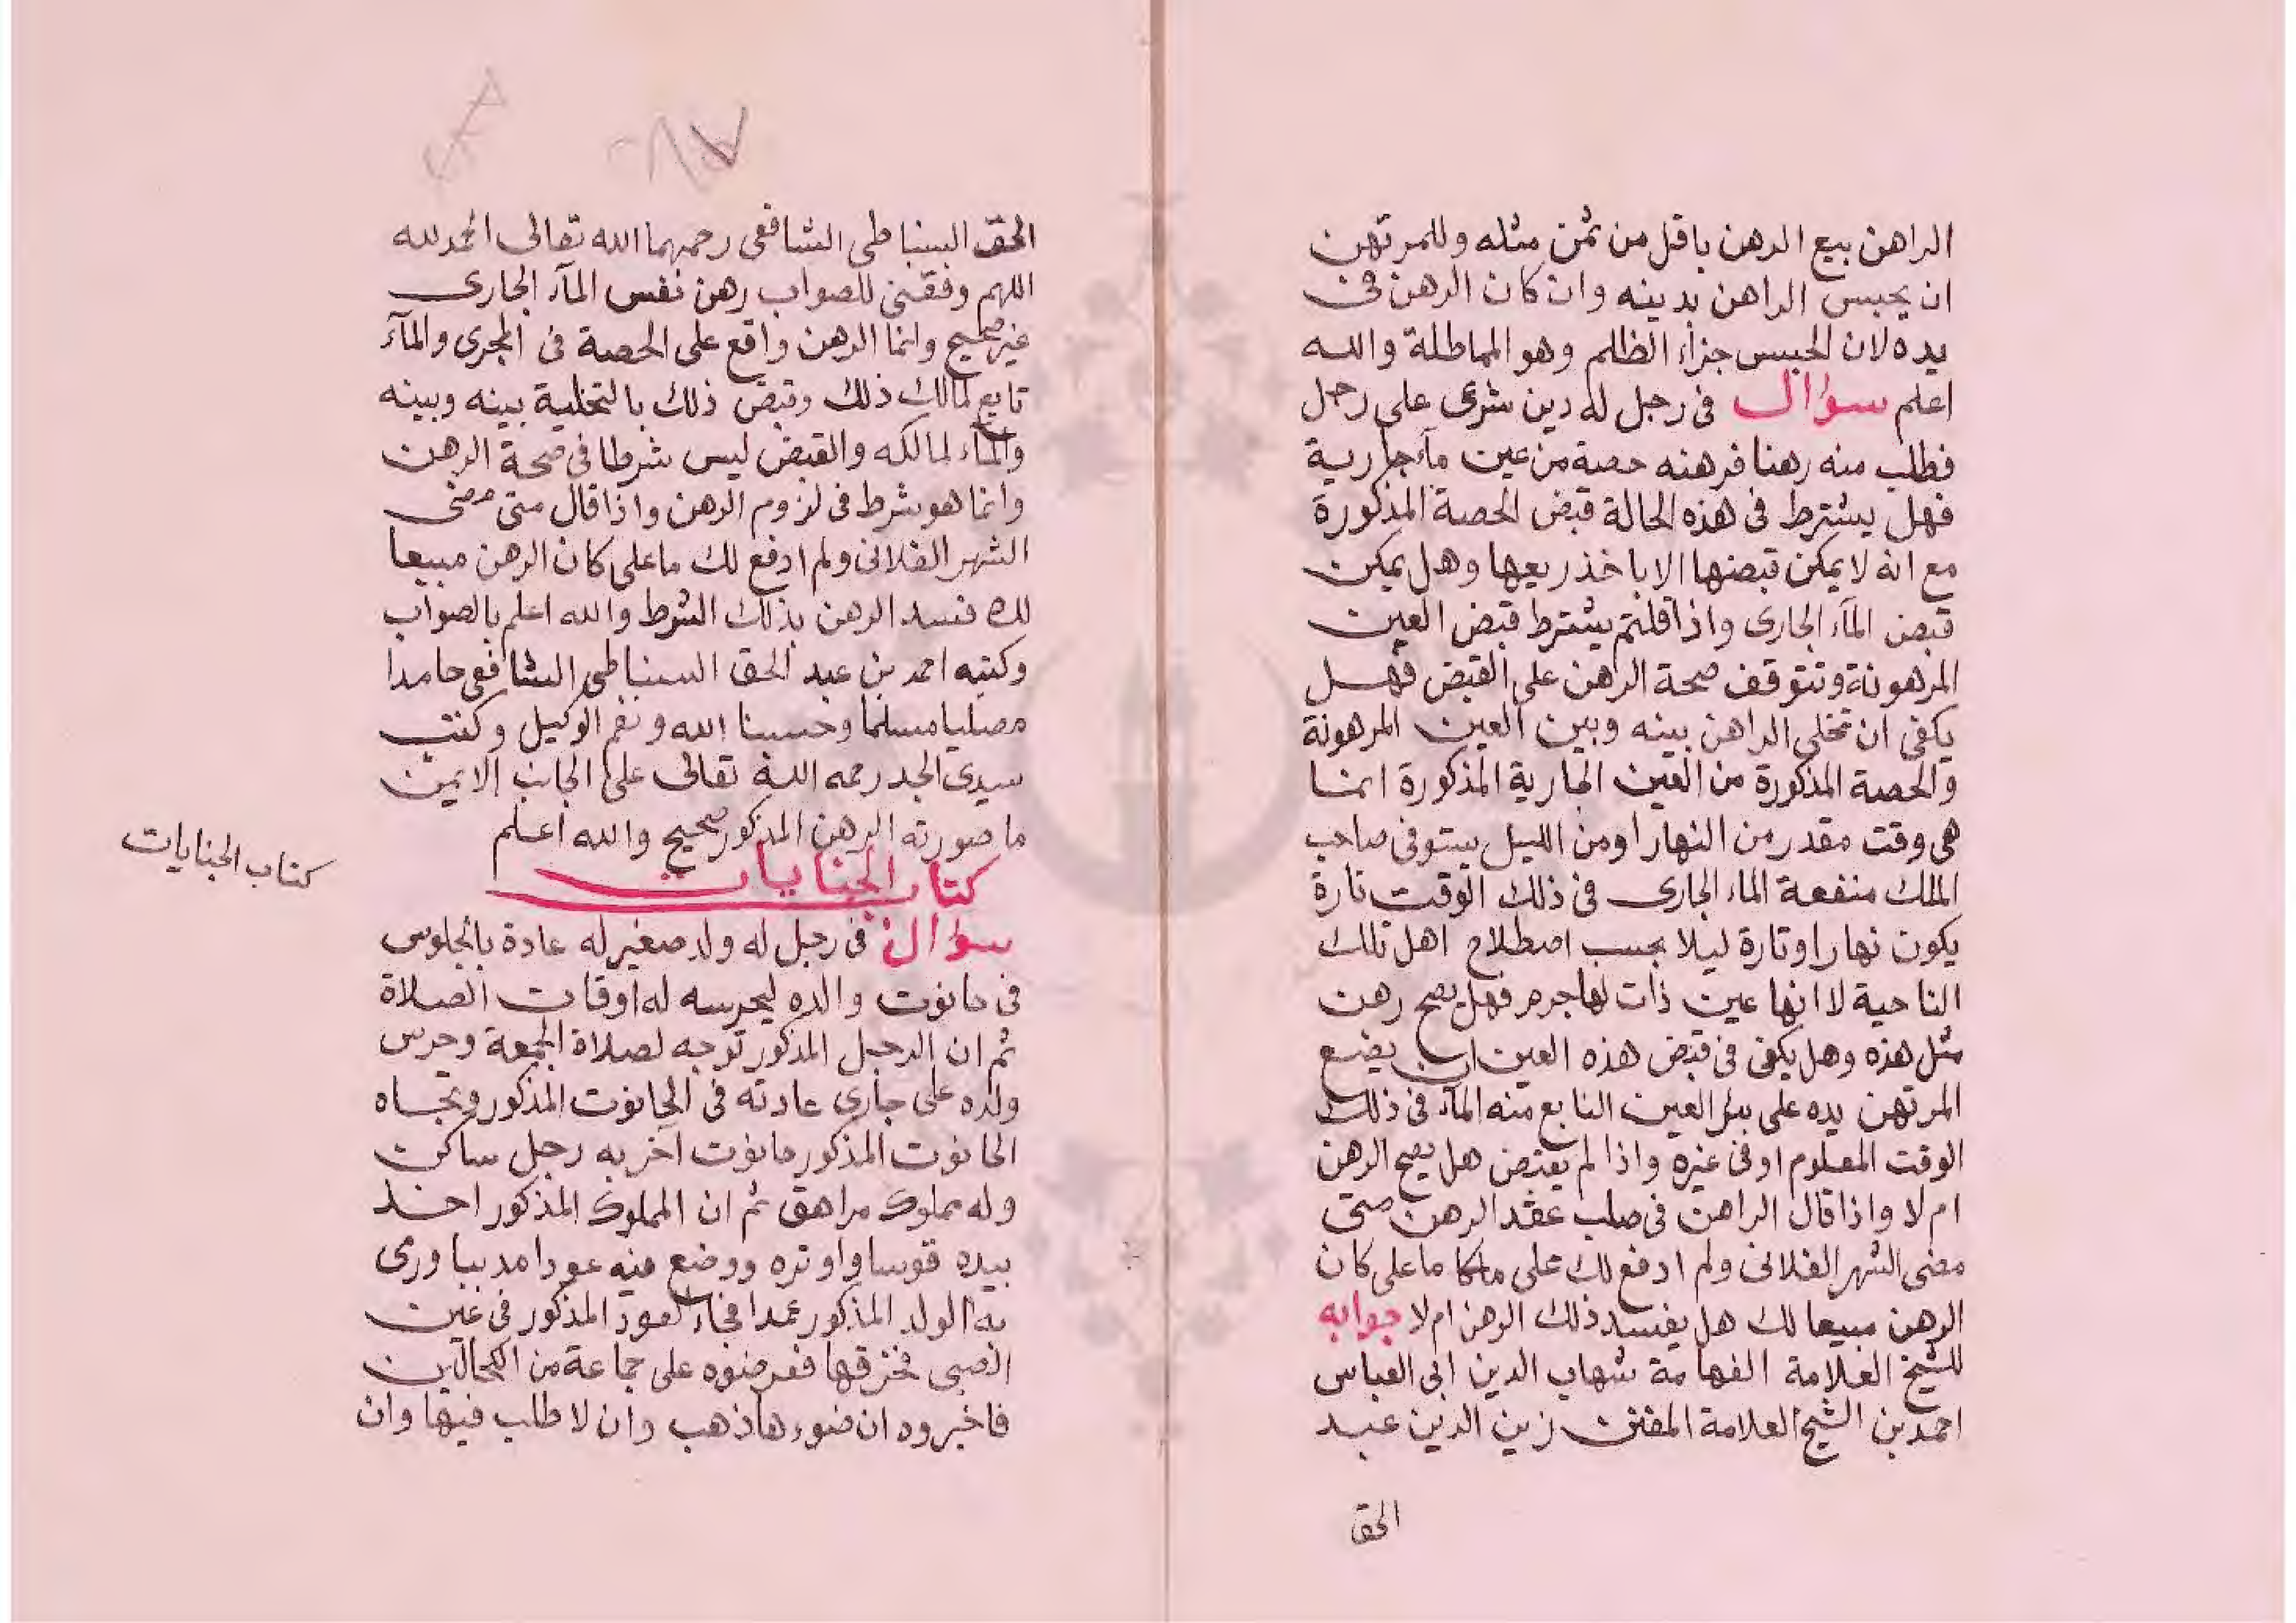 الراهن ببيع الرهن باقل من ثمن مثله وللمرتهن
ان يحبس الراهن بدينه وان كان الرهن في
يده لان الحبس جزاء الظلم وهو المماطلة والله
اعلم سوال في رجل له دين شرعى على رجل
فطلب منه رهنا فرهنه حصة من عين ماء جارية
فهل يشترط في هذه الحالة قبض الحصة المذكورة
مع انه لا يمكن قبضها الا باخذ ريعها وهل يمكن
قبض الماء الجارى واذا قلتم يشترط قبض العين
المرهونة وتتوقف صحة الرهن على القبض فهل
يكفى ان تخلى الراهن بينه وبين العين المرهونة
والحصة المذكورة من العين الجارية المذكورة انما
هى وقت مقدر من النهار او من الليل يستوفى صاحب
الملك منفعة الماء الجارى في ذلك الوقت تارة
يكون نهارا وتارة ليلا بحسب اصطلاح اهل تلك
الناحية لا انها عين ذات لها جرم فهل يصح رهن
مثل هذه وهل يكفى في قبض هذه العين ان يضع
المرتهن يده على بئر العين النابع منه الماء في ذلك
الوقت المعلوم او في غيره واذا لم يقبض هل يصح الرهن
ام لا واذا قال الراهن في صلب عقد الرهن متى
مضى الشهر الفلانى ولم ادفع لك على ما على كان
الرهن مبيعا لك هل يفسد ذلك الرهن ام لا جوابه
للشيخ العلامة الفهامة شهاب الدين ابى العباس
احمد بن الشيخ العلامة المفنن زين الدين عبد
الحق
الحق السنباطى الشافعى رحمهما الله تعالى الحمد لله
اللهم وفقنى للصواب رهن نفس الماء الجارى
غير صحيح وانما الرهن واقع على الحصة في المجرى والماء
تابع لمالك ذلك وقبض ذلك بالتخلية بينه وبينه
والماء لمالكه والقبض ليس شرطا في صحة الرهن
وانما هو شرط في لزوم الرهن واذا قال متى مضى
الشهر الفلانى ولم ادفع لك ما على كان الرهن مبيعا
لك فسد الرهن بذلك الشرط والله اعلم بالصواب
وكتبه احمد بن عبد الحق السنباطى الشافعى حامدا
مصليا مسلما وحسبنا الله ونعم الوكيل وكتب
سيدى الجد رحمه الله تعالى على الجانب الايمن
ما صورته الرهن المذكور صحيح والله اعلم
كتاب الجنايات
كتاب الجنايات
سوال في رجل له ولد صغير له عادة بالجلوس
في حانوت والده ليحرسه له اوقات الصلاة
ثم ان الرجل المذكور توجه لصلاة الجمعة وحرس
ولده على جارى عادته في الحانوت المذكور وتجاه
الحانوت المذكور حانوت آخر به رجل ساكن
وله مملوك مراهق ثم ان المملوك المذكور اخذ
بيده قوسا واوتره ووضع فيه عودا مدببا ورمى
به الولد المذكور عمدا فجاء العود المذكور في عين
الصبى فخزقها فعرضوه على جماعة من الكحالين
فاخبروه ان ضوءها ذهب وان لا طلب فيها وان